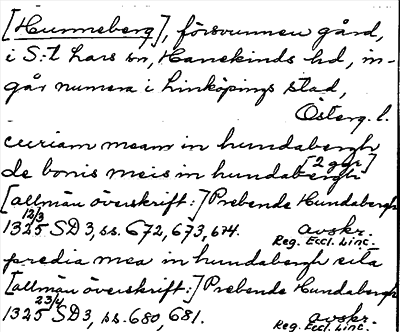 [Hunneberg], försvunnen gård,
i S:t Lars sn, Hanekinds hd, in-
går numera i Linköpings stad,
Österg. l.
curiam meam in hundabergh
de bonis meis in hundabergh [2 ggr]
[allmän överskrift:] Prebende Hundabergh
1325 12/3 SD 3, ss. 672, 673, 674. avskr.
Reg. Eccl. Linc.
predia mea in hundabergh sita
[allmän överskrift:] Prebende Hundabergh
1325 23/4 SD 3, ss. 680, 681. avskr.
Reg. Eccl. Linc.